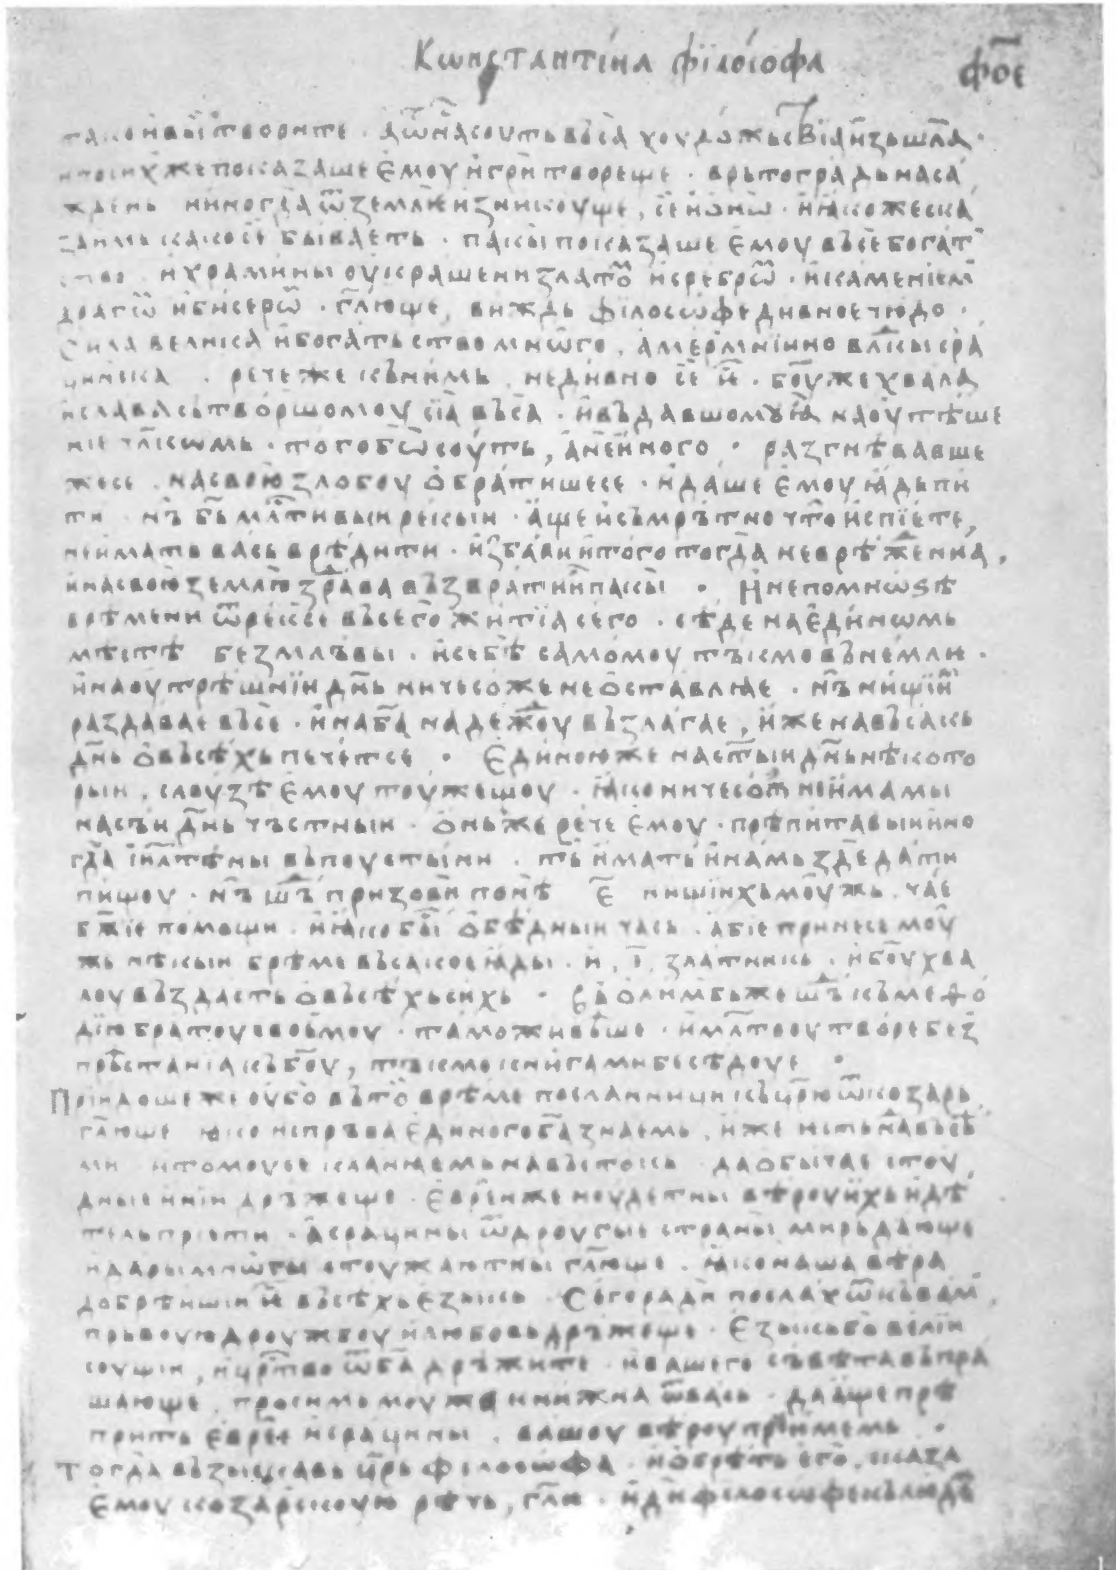 Кѡнстантіна філософа фо҃е
тако и вы творите . ѿ нас соуть въса хоудожьствїа изъшла .
ꙗже показаше емоу и гри твореще . врътоградь наса
ждень иногда ѿ земліе изникоуще , и ꙗкоже ска
за имь како се бываеть . пакы показаше емоу въсе богат
ство и храмины оукрашени златѡ҃ и сребрѡ҃ . и каменіем
драгіи и бисерѡ . гл҃юще , виждь філосѡфе дивное чюдо .
сила велика и богатьство мнѡго , амермнінно влⷣкы сра
циньска . рече же къ нимь , не дивно се є҃ . боу҃ же хвала
и слава сътворшомоу сїа въса . и въдавшомꙋ ꙗ на оутѣше
ніе чл҃кѡмь . того бѡ соуть , а не иного . разгнѣвавше
же се . на свою злобоу ѡбратишесе . и даше емоу ꙗдь пи
ти . нъ б҃ь млⷭтивыи рекыи . аще и съмрътно что испїете ,
не имать вась врѣдити . избави и того тогда неврѣжденна .
и на свою землю здрава възврати и пакы . И не по мнѡзѣ
врѣмени ѿрексе въсего житїа сего . сѣде на единомь
мѣстѣ без мльвы . и себѣ самомоу тъкмо вънемлѥ .
и на оутрѣшнїи дн҃ь ничесоже не ѡставлꙗе . нъ нищіи҃
раздавае въсе . и на б҃а надеждоу възлагае , иже на въсакь
дн҃ь ѡ въсѣхь печетсе . Единою же на ст҃ыи дн҃ь нѣкото
рыи , слоузѣ емоу тоужещоу . ꙗко ничесоже не имамы
на съи дн҃ь чьстныи . ѡнь же рече емоу . прѣпитавыи ино
гда ізл҃тѣны въ поустыни . тъ имать и намь зде дати
пищоу . нъ шъⷣ призови понѣ є҃ нищіихь моужь чае
б҃жіе помощи . и ꙗко бы ѡбѣдныи чась . абіе принесе моу
жь нѣкыи брѣме въсакое ꙗды . и , і҃ , златникь . и боу҃ хва
лоу въздасть ѡ въсѣхь сихь . Въ ѡлимбь же шъⷣ къ меѳо
дїю братоу своемоу . тамо живѣше . и млⷭтвоу творе без
прѣстаніа къ боу҃ , тъкмо книгами бесѣдоуе .
Пріидоше же оубо въ то врѣме посланници къ цр҃ю ѿ козарь ,
гл҃юще . ꙗко испръва единого б҃а знаемь , иже исть над въсѣ
ми . и томоусе кланꙗемь на въстокь . да обычае стоу
дные ины дръжеще . еврѣи же ноудетны вѣроу ихь и дѣ
тель прїети . а срацины ѿ дроугые страны мирь дающе
и дары мнѡгы стоужаютны гл҃юще . ꙗко наша вѣра
добрѣишіи є҃ въсѣхь езыкь . Сего ради послахѡ къ вам ,
пръвоую дроужбоу и любовь дръжеще . Езыкь бо веліи
соущіи , и црⷭтво ѿ б҃а дръжите . и вашего съвѣта въпра
шающе . просимь моужа книжна ѿ вась . да аще прѣ
прить евреи и срацины , вашоу вѣроу приимемь .
Тогда възыскавь цр҃ь філосѡфа . и ѡбрѣть его , сказа
емоу козарскоую рѣчь , гл҃ю . иди філосѡфе къ людⷨе